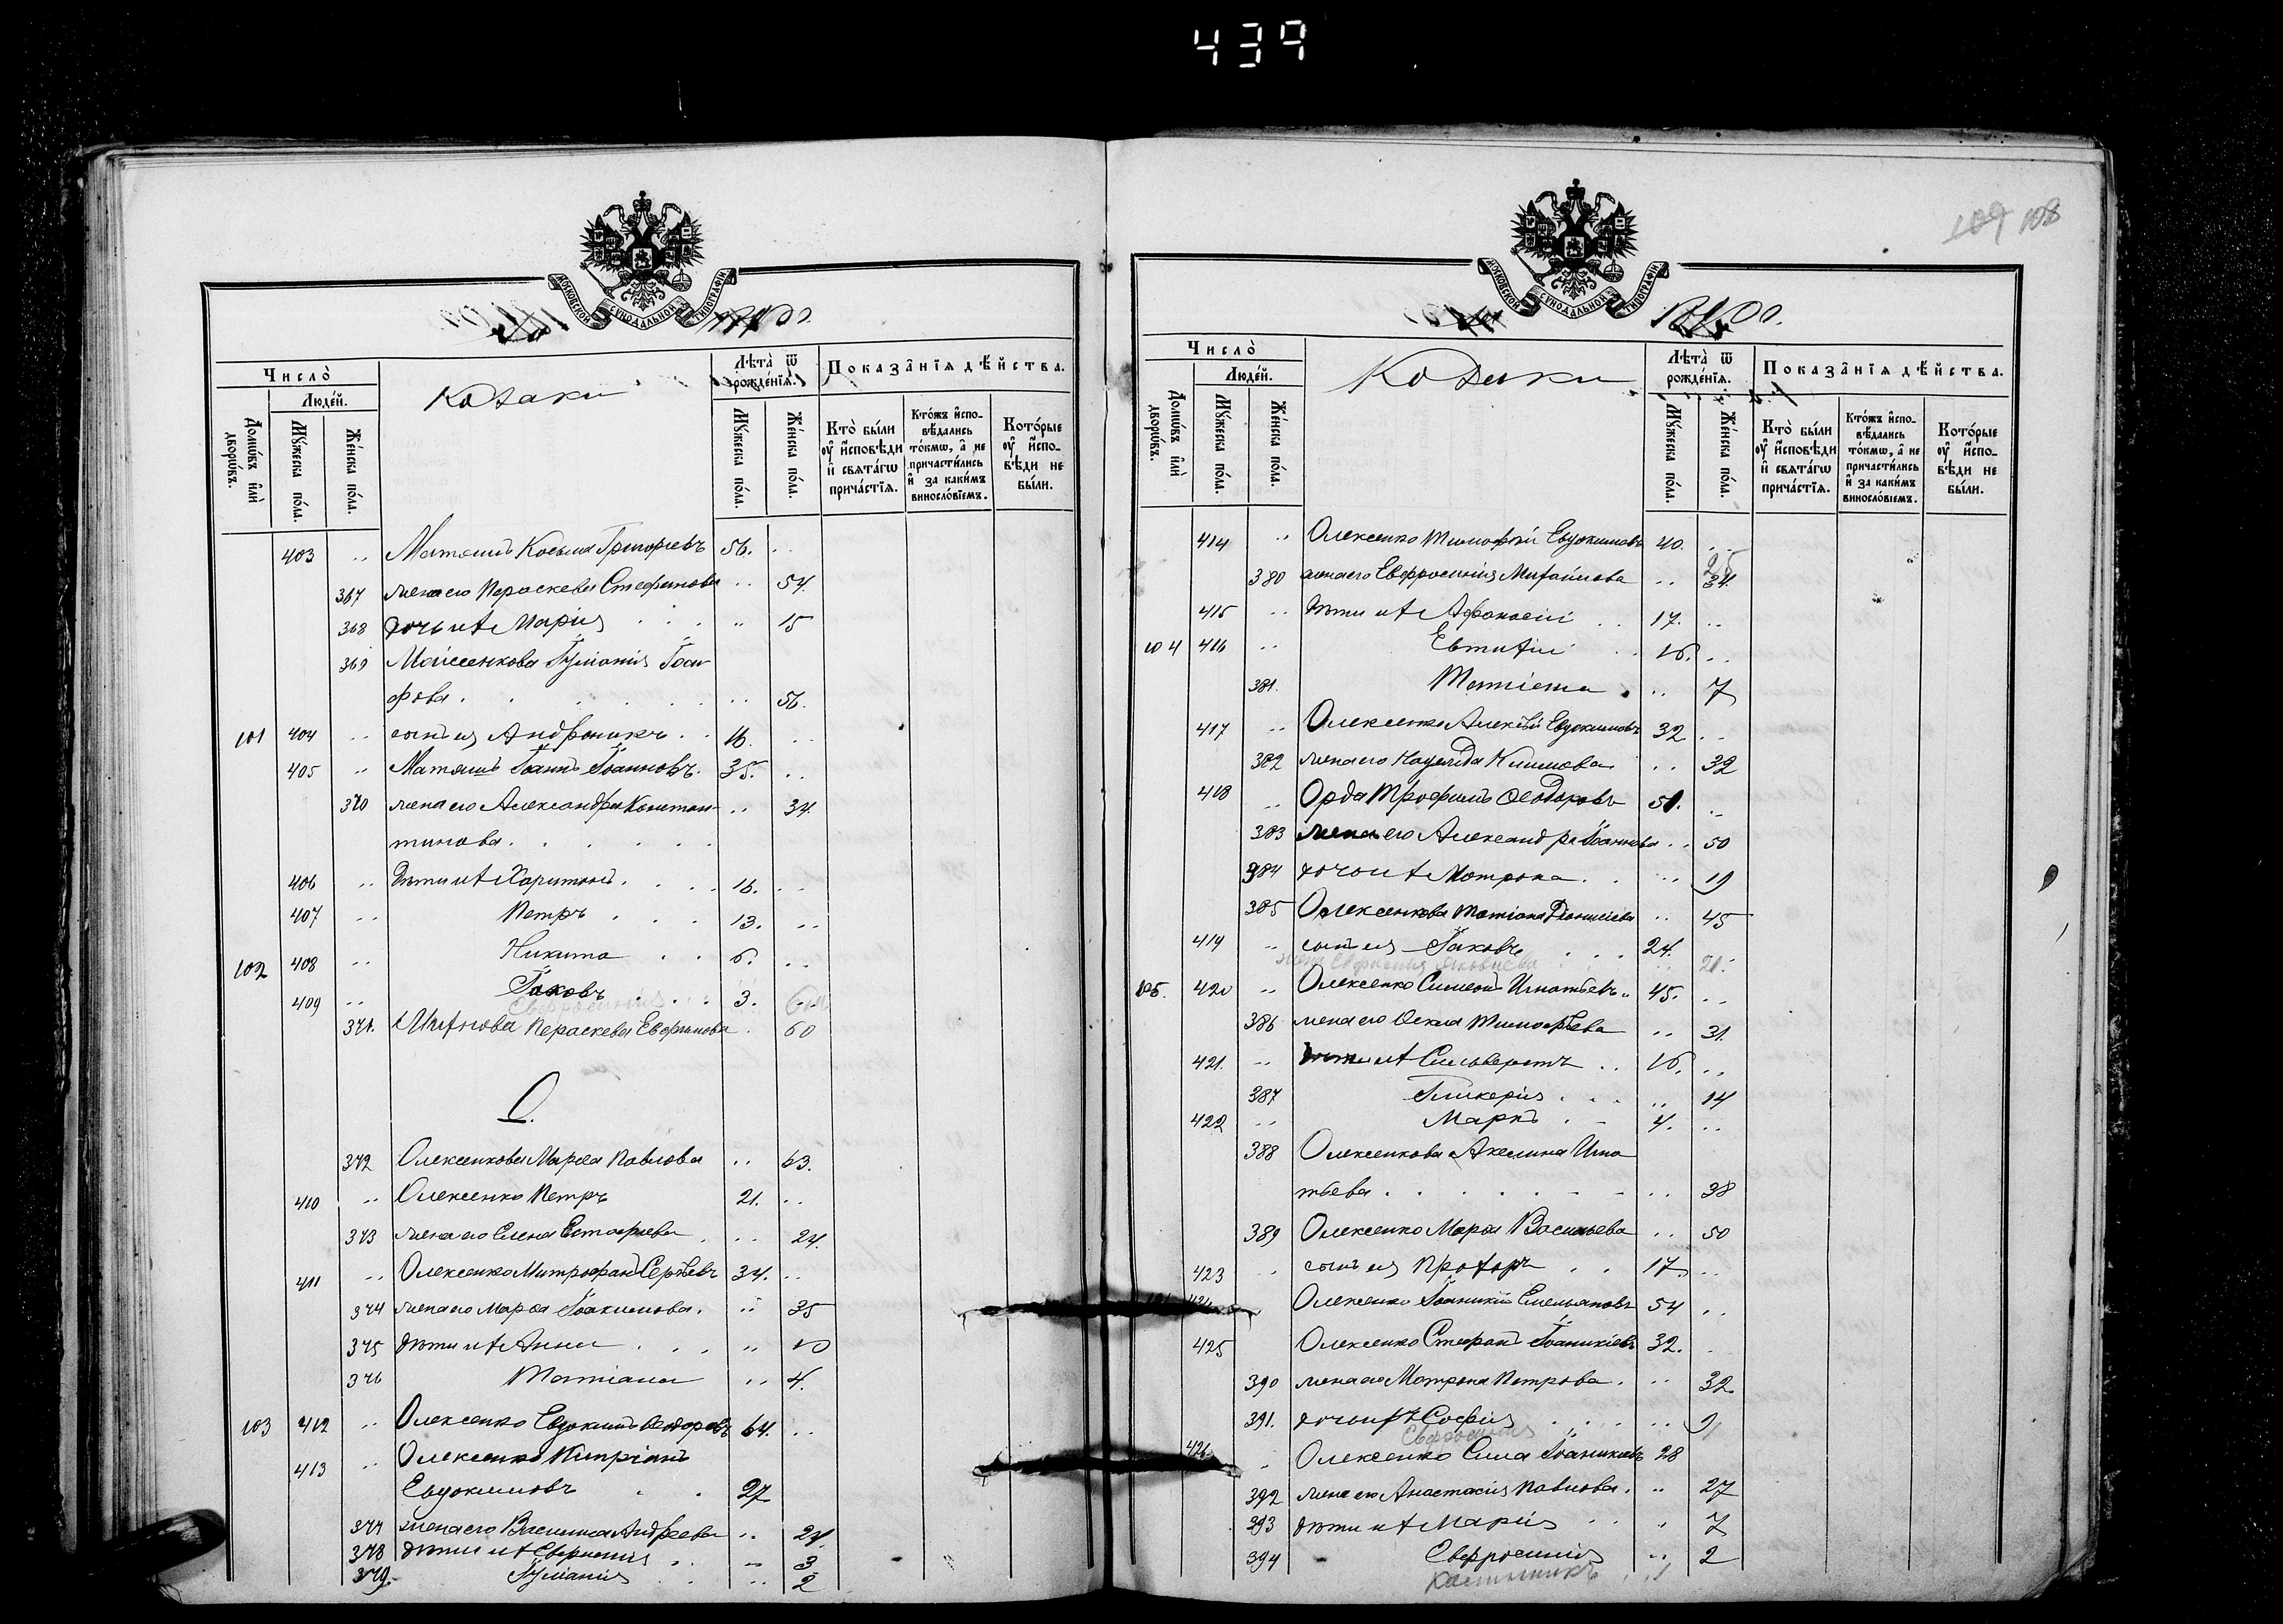 439
МОСКОВСКОЙ СУНОДАЛЬНОЙ ТИПОГРАФІИ
Число̀
Людей.
Домѡвъ или дворѡвъ.
Мꙋжеска пола.
Женска пола.
Козаки
Лѣта ѿ рожденїѧ.
Мꙋжеска пола.
Женска пола.
Показанїѧ дѣйства.
Кто были ᲂу҆ исповѣди и свѧтагѡ причастїѧ.
Ктожъ исповѣдались токмѡ, а не причастились и за какимъ винословїемъ.
Которые ᲂу҆ исповѣди не были.
403 .. Матяшъ Косьма Григорьевъ 56. ..
367 жена его Параскева Стефанова .. 54.
368 дочь ихъ Марія .. 15
369 Моисеенкова Іуліанія Іоси-
фова .. 56.
101 404 .. сынъ ея Андроникъ .. 16. ..
405 .. Матяшъ Іоаннъ Іоанновъ. 35. ..
370 жена его Александра Констан- .. 34.
тинова
406 .. дѣти ихъ Харитонъ 16. ..
407 .. Петръ 13. ..
102 408 .. Никита 6. ..
409 .. Іаковъ 3.
Евфросинія
371. Михнова Параскева Евфимова . 60
О.
372 Олексенкова Марѳа Павлова .. 63.
410 .. Олексенко Петръ 21. ..
373 жена его Елена Евстафіева .. 24.
411 .. Олексенко Митрофанъ Сергѣевъ 34. ..
374 жена его Марѳа Іоакимова. .. 35
375 дѣти ихъ Анна .. 10
376 Татіана .. 4.
103 412 .. Олексенко Евдокимъ Ѳеодоровъ 64. ..
413 .. Олексенко Кипріанъ
Евдокимовъ 27
377 жена его Василиса Андреева .. 24.
378 дѣти ихъ Евфимія .. 3
379. Іуліанія .. 2
109 108
МОСКОВСКОЙ СУНОДАЛЬНОЙ ТИПОГРАФІИ
Число̀
Людей.
Домѡвъ или дворѡвъ.
Мꙋжеска пола.
Женска пола.
Козаки
Лѣта ѿ рожденїѧ.
Мꙋжеска пола.
Женска пола.
Показанїѧ дѣйства.
Кто были ᲂу҆ исповѣди и свѧтагѡ причастїѧ.
Ктожъ исповѣдались токмѡ, а не причастились и за какимъ винословїемъ.
Которые ᲂу҆ исповѣди не были.
414 .. Олексенко Тимофей Евдокимовъ 40. ..
380 жена его Евфросинія Михайлова .. 34.
415 .. дѣти ихъ Афанасій .. 17. ..
104 416 .. Евтихій 16. ..
381. Татіана .. 7
417 .. Олексенко Алексѣй Евдокимовъ 32 ..
382 жена его Надежда Климова .. 32
418 .. Орда Трофимъ Ѳеодоровъ 51. ..
383 жена его Александра Іоаннова .. 50
384 дочь ихъ Мотрона .. 19
385 Олексенкова Татіана Діонисіева .. 45
419 .. сынъ ея Іаковъ 24.
жена Евфимія Яковлева 21.
105. 420 .. Олексенко Симеонъ Игнатьевъ 45. ..
386 жена его Ѳекла Тимофѣева .. 31.
421. .. дѣти ихъ Сильвестръ .. 16. ..
387 Гликерія .. 14
422 .. Маркъ 4. ..
388 Олексенкова Акелина Игна
тьева .. 38
389 Олексенко Марѳа Васильева .. 50
423 . сынъ ея Прохоръ .. 17. ..
Олексенко Іоанникій Емельяновъ 54 ..
425 Олексенко Стефанъ Іоанникіевъ 32.
390 жена его Мотрона Петрова. .. 32.
391. дочь ихъ Софія .. 9
Евфросинія
426 .. Олексенко Сила Іоанникіевъ 28
392 жена его Анастасія Павлова. .. 27
393 дѣти ихъ Марія .. 7
394 Евфросинія .. 2
Каллиникъ 1